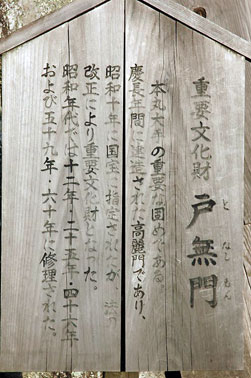 重要文化財 戸無門
となしもん
本丸大手の重要な固めである。
慶長年間に建造された高麗門であり、
昭和十年に国宝に指定されたが、法
改正により重要文化財となった。
昭和年代では十二年・二十五年・四十六年
および五十九年・六十年に修理された。